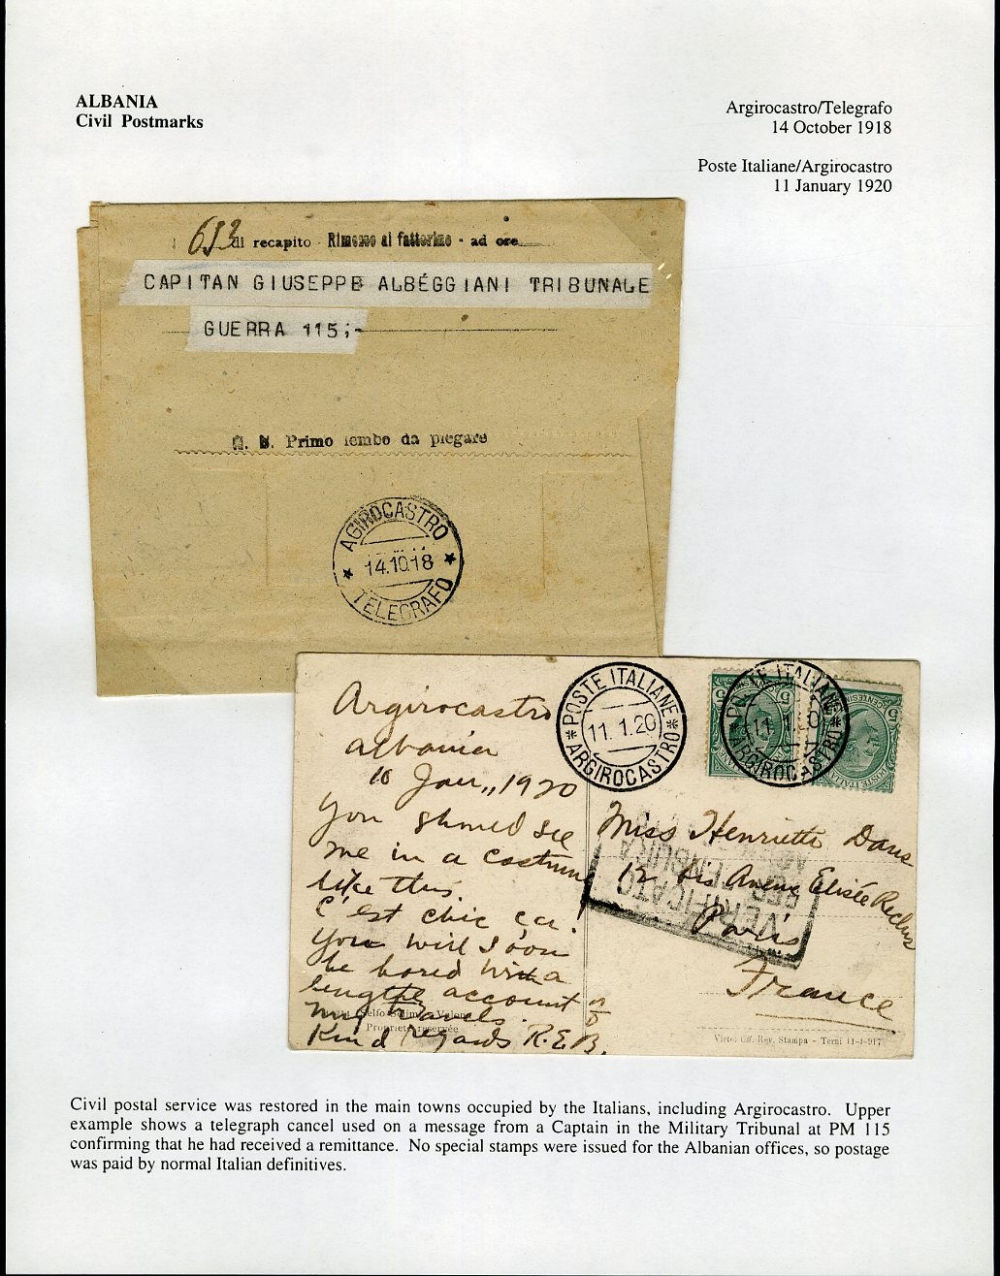 ALBANIA
Civil Postmarks
Argirocastro/Telegrafo
14 October 1918
Poste Italiane/Argirocastro
11 January 1920
di recapito - Rimesso al fattorino - ad ore
CAPITAN GIUSEPPE ALBÉGGIANI TRIBUNALE
GUERRA 115;-
N. B. Primo lembo da piegare
AGIROCASTRO
14.10.18
TELEGRAFO
Argirocastro
Albania
10 Jan,, 1920
You should see
me in a costume
like this.
C'est chic ça!
You will soon
be bored with a
lengthy account of
my travels.
Kind regards R.E.B.
Proprietà riservata
POSTE ITALIANE
11.1.20
ARGIROCASTRO
POSTE ITALIANE
11.1.20
ARGIROCASTRO
Miss Henriette Davis
12 bis Avenue Elisée Reclus
Paris
France
VERIFICATO
PER CENSURA
Rev. Stampa - Terni 11-4-917
Civil postal service was restored in the main towns occupied by the Italians, including Argirocastro. Upper
example shows a telegraph cancel used on a message from a Captain in the Military Tribunal at PM 115
confirming that he had received a remittance. No special stamps were issued for the Albanian offices, so postage
was paid by normal Italian definitives.